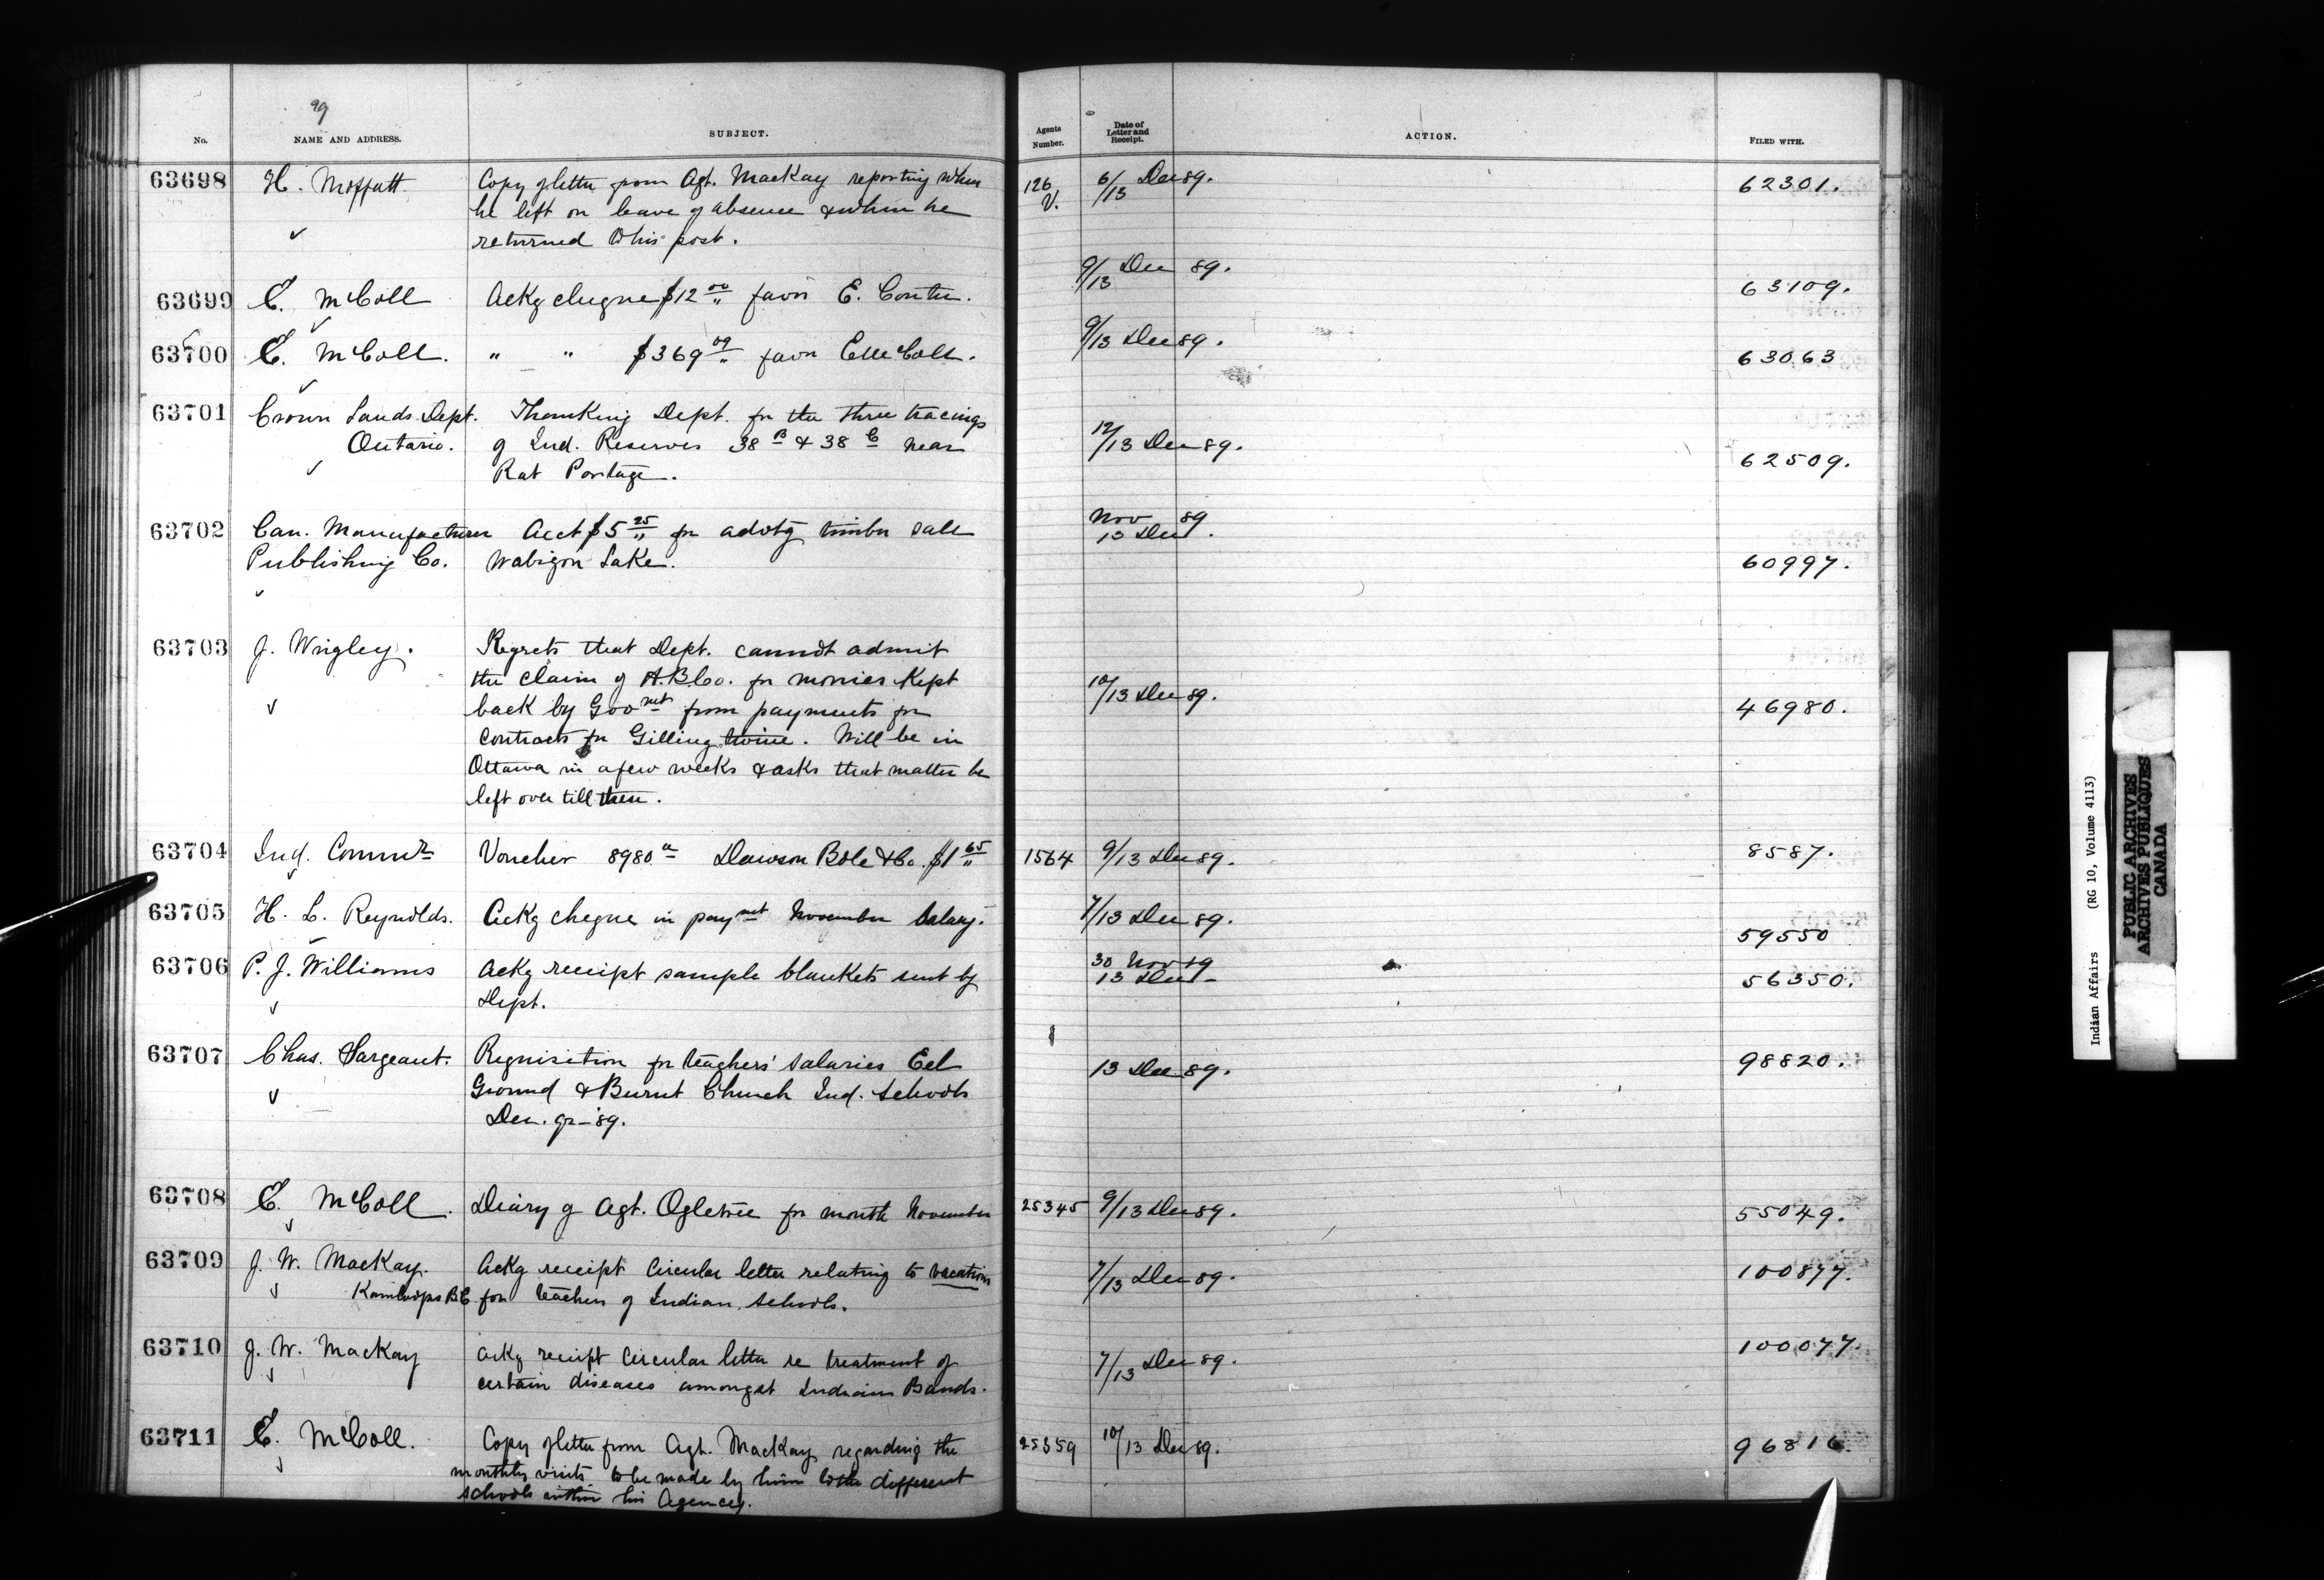 99
No. NAME AND ADDRESS. SUBJECT. Agents Number. Date of Letter and Receipt. ACTION. FILED WITH.
63698 H. Moffatt Copy of letter from Agt. MacKay reporting when 126 V. 6/13 Dec 89. 62301.
he left on leave of absence & when he
returned to his post.
63699 E. McColl Ackg cheque $12 00/" favor E. Coutu. 9/13 Dec 89. 63109.
63700 E. McColl. " " $369 09/" favor E McColl. 9/13 Dec 89. 63063
63701 Crown Lands Dept. Thanking Dept. for the three tracings
Ontario. of Ind. Reserves 38 B & 38 C near 12/13 Dec 89. 62509.
Rat Portage.
63702 Can. Manufacturer Acct $5 25/" for advtg timber sale Nov 89
13 Dec.
Publishing Co. Wabigon Lake. 60997.
63703 J. Wrigley. Regrets that Dept. cannot admit
the claim of H.B.Co. for monies kept
back by Govmet from payments for 10/13 Dec 89. 46980.
contracts for Gilling twine. Will be in
Ottawa in a few weeks & asks that matter be
left over till then.
63704 Ind. Commr Voucher 8980 a Dawson Bole & Co. $1 65/" 1564 9/13 Dec 89. 8587.
63705 H. L. Reynolds. Ackg cheque in paymet November Salary. 7/13 Dec 89. 59550
63706 P. J. Williams Ackg receipt sample blankets sent by 30 Nov 89
13 Dec 56350.
Dept.
63707 Chas. Sargeant. Requisition for teachers' salaries Eel 13 Dec 89. 98820.
Ground & Burnt Church Ind. Schools
Dec. qr - 89.
63708 E. McColl. Diary of Agt. Ogletree for month November 25345 9/13 Dec 89. 55049.
63709 J. W. MacKay. Ackg receipt Circular letter relating to vacations 7/13 Dec 89. 100877.
Kamloops B.C for teachers of Indian Schools.
63710 J. W. MacKay Ackg receipt Circular letter re treatment of 7/13 Dec 89. 100077.
certain diseases amongst Indians Bands.
63711 E. McColl. Copy of letter from Agt. MacKay regarding the 25359 10/13 Dec 89. 96816.
monthly visits to be made by him to the different
schools within his Agency.
Indian Affairs (RG 10, Volume 4113)
PUBLIC ARCHIVES
ARCHIVES PUBLIQUES
CANADA